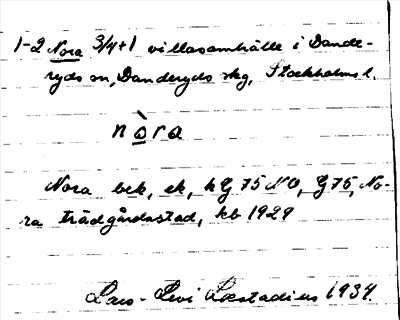 1-2 Nora 3/4+1 villasamhälle i Dande-
ryds sn, Danderyds skg, Stockholms l.
nòra
Nora bek, ek, hG 75 NO, G75, No-
ra trädgårdsstad, kb 1929
Lars-Levi Læstadius 1934.